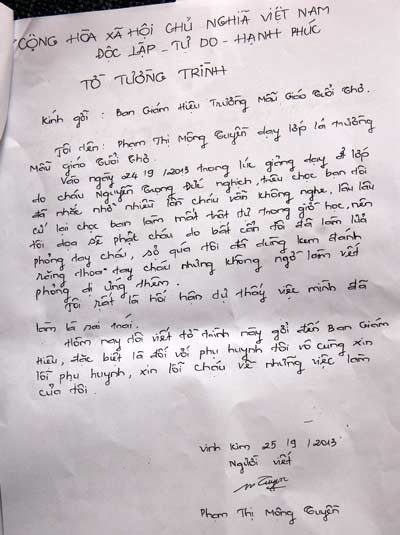 CỘNG HÒA XÃ HỘI CHỦ NGHĨA VIỆT NAM
ĐỘC LẬP - TỰ DO - HẠNH PHÚC
TỜ TƯỜNG TRÌNH
Kính gởi : Ban Giám Hiệu Trường Mẫu Giáo Tuổi Thơ.
Tôi tên: Phạm Thị Mộng Tuyền dạy lớp lá trường
Mẫu giáo Tuổi Thơ.
Vào ngày 24/9/2013 trong lúc giảng dạy ở lớp
do cháu Nguyễn Trọng Đức nghịch, trêu chọc bạn tôi
đã nhắc nhở nhiều lần cháu vẫn không nghe, lâu lâu
cứ lại chọc bạn làm mất trật tự trong giờ học, nên
tôi dọa sẽ phạt cháu do bất cẩn tôi đã làm lửa
phỏng tay cháu, sợ quá tôi đã dùng kem đánh
răng thoa tay cháu nhưng không ngờ làm viết
phỏng di ứng thêm.
Tôi rất là hối hận dự thấy việc mình đã
làm là sai trái.
Hôm nay tôi viết tờ trình này gởi đến Ban Giám
Hiệu, đặc biệt là đối với phụ huynh tôi vô cùng xin
lỗi phụ huynh, xin lỗi cháu về những việc làm
của tôi.
Vĩnh Kim 25/9/2013
Người viết
Tuyền
Phạm Thị Mộng Tuyền